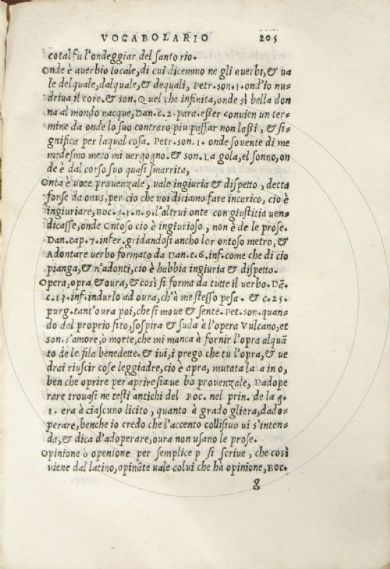 VOCABOLARIO 205
cotal fu l'ondeggiar del santo rio.
Onde è auerbio locale, di cui dicemmo ne gli auerbi, & ua
le del quale, dal quale, & de quali, Petr. son. 1. ond'io nu-
driua il core. & son. Quel che infinita, onde sì bella don
na al mondo nacque, Dan. c. 2. para. esser conuien un ter-
mine da onde lo suo contraro piu passar non lassi, & si-
gnifica per laqual cosa. Petr. son. 1. onde souente di me
medesmo meco mi uergogno. & son. La gola, el sonno, on
de è dal corso suo quasi smarrita,
Onta è uoce prouenzale, uale ingiuria & dispetto, detta
forse da onus, per cio che noi diciamo fare incarico, cio è
ingiuriare, BOC. 41. n. 9. l'altrui onte con giustitia uen-
dicasse, onde Ontoso cio è ingiurioso, non è de le prose.
Dan. cap. 7. infer. gridandosi ancho lor ontoso metro, &
Adontare uerbo formato da Dan. c. 6. inf. come che di cio
pianga, & n'adonti, cio è habbia ingiuria & dispetto.
Opera, opra & oura, & così si forma da tutte il uerbo. Dã
c. 13. inf. indurlo ad oura, ch'à me stesso pesa. & c. 25.
purg. tant'oura poi, che si moue & sente. Pet. son. quan-
do dal proprio sito, sospira & suda à l'opera Vulcano, et
son. s'amore, o morte, che mi manca à fornir l'opra alquã
to de le fila benedette. & iui, i prego che tu l'opra, & ue
drai riuscir cose leggiadre, cio è apra, mutata la a in o,
ben che oprire per aprire sia ue bo prouenzale, Dadope
rare trouasi ne testi antichi del BOC. nel prin. de la 4
1. era è ciascuno licito, quanto à grado gliera, dado-
perare, benche io credo che l'accento collisiuo ui s'inten-
da, & dica d'adoperare, oura non usano le prose.
Opinione ò openione per semplice p si scriue, che così
viene dal latino, opinãte uale colui che hà opinione, BOC.
g